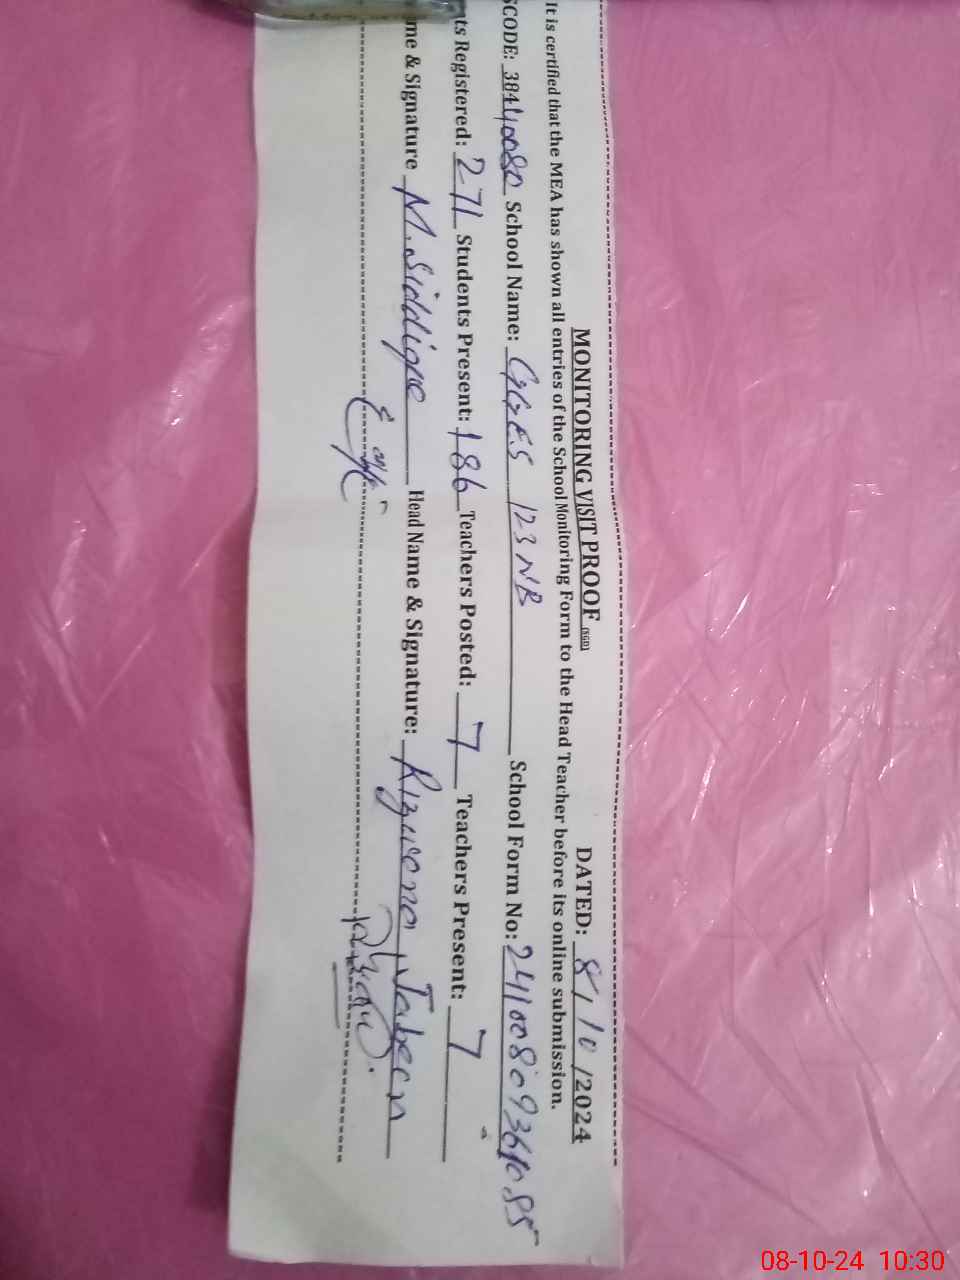 MONITORING VISIT PROOF (SGD) DATED: 8/10/2024
It is certified that the MEA has shown all entries of the School Monitoring Form to the Head Teacher before its online submission.
SCODE: 38440080 School Name: GGES 123 NB School Form No:
ts Registered: 271 Students Present: 186 Teachers Posted: 7 Teachers Present: 7
me & Signature M. Siddique Head Name & Signature: Rizwana Jabeen
08-10-24 10:30